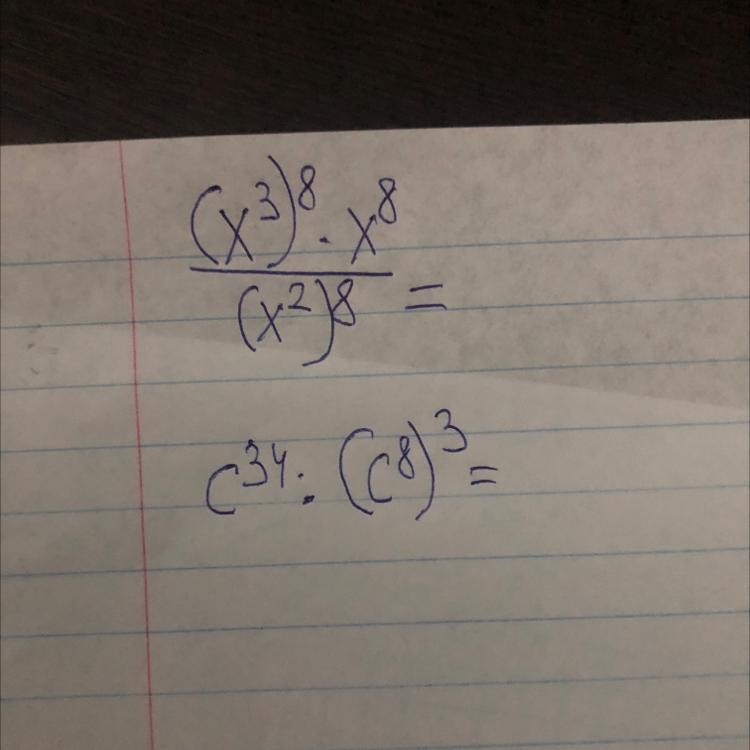 (x³)⁸ · x⁸
(x²)⁸ =
c³⁴ : (c⁸)³ =